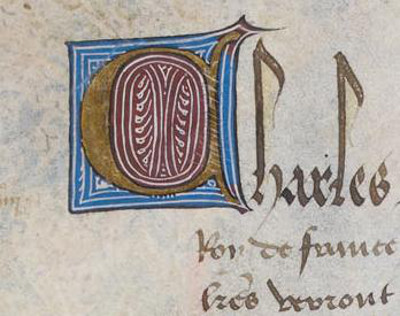 Charles
Roy de france
lrẽs verront